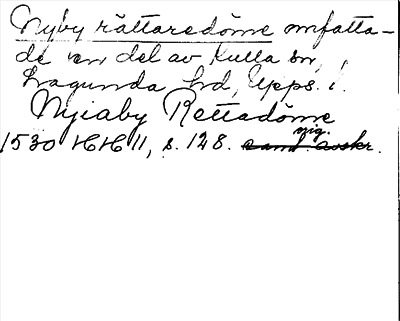 Nyby rättaredöme omfatta-
de en del av Kulla sn,
Lagunda hd, Upps. l.
Nyiaby Rettadöme
1530 HH 11, s. 128. sig.